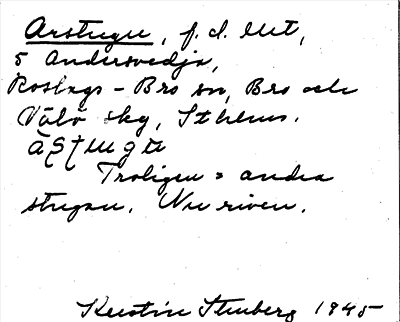 Årstugu, f. d. lht,
5 Andersvedja,
Roslags-Bro sn, Bro och
Välö skg, Sthlms.
Troligen = andra
stugan. Nu riven.
Kerstin Stenberg 1945